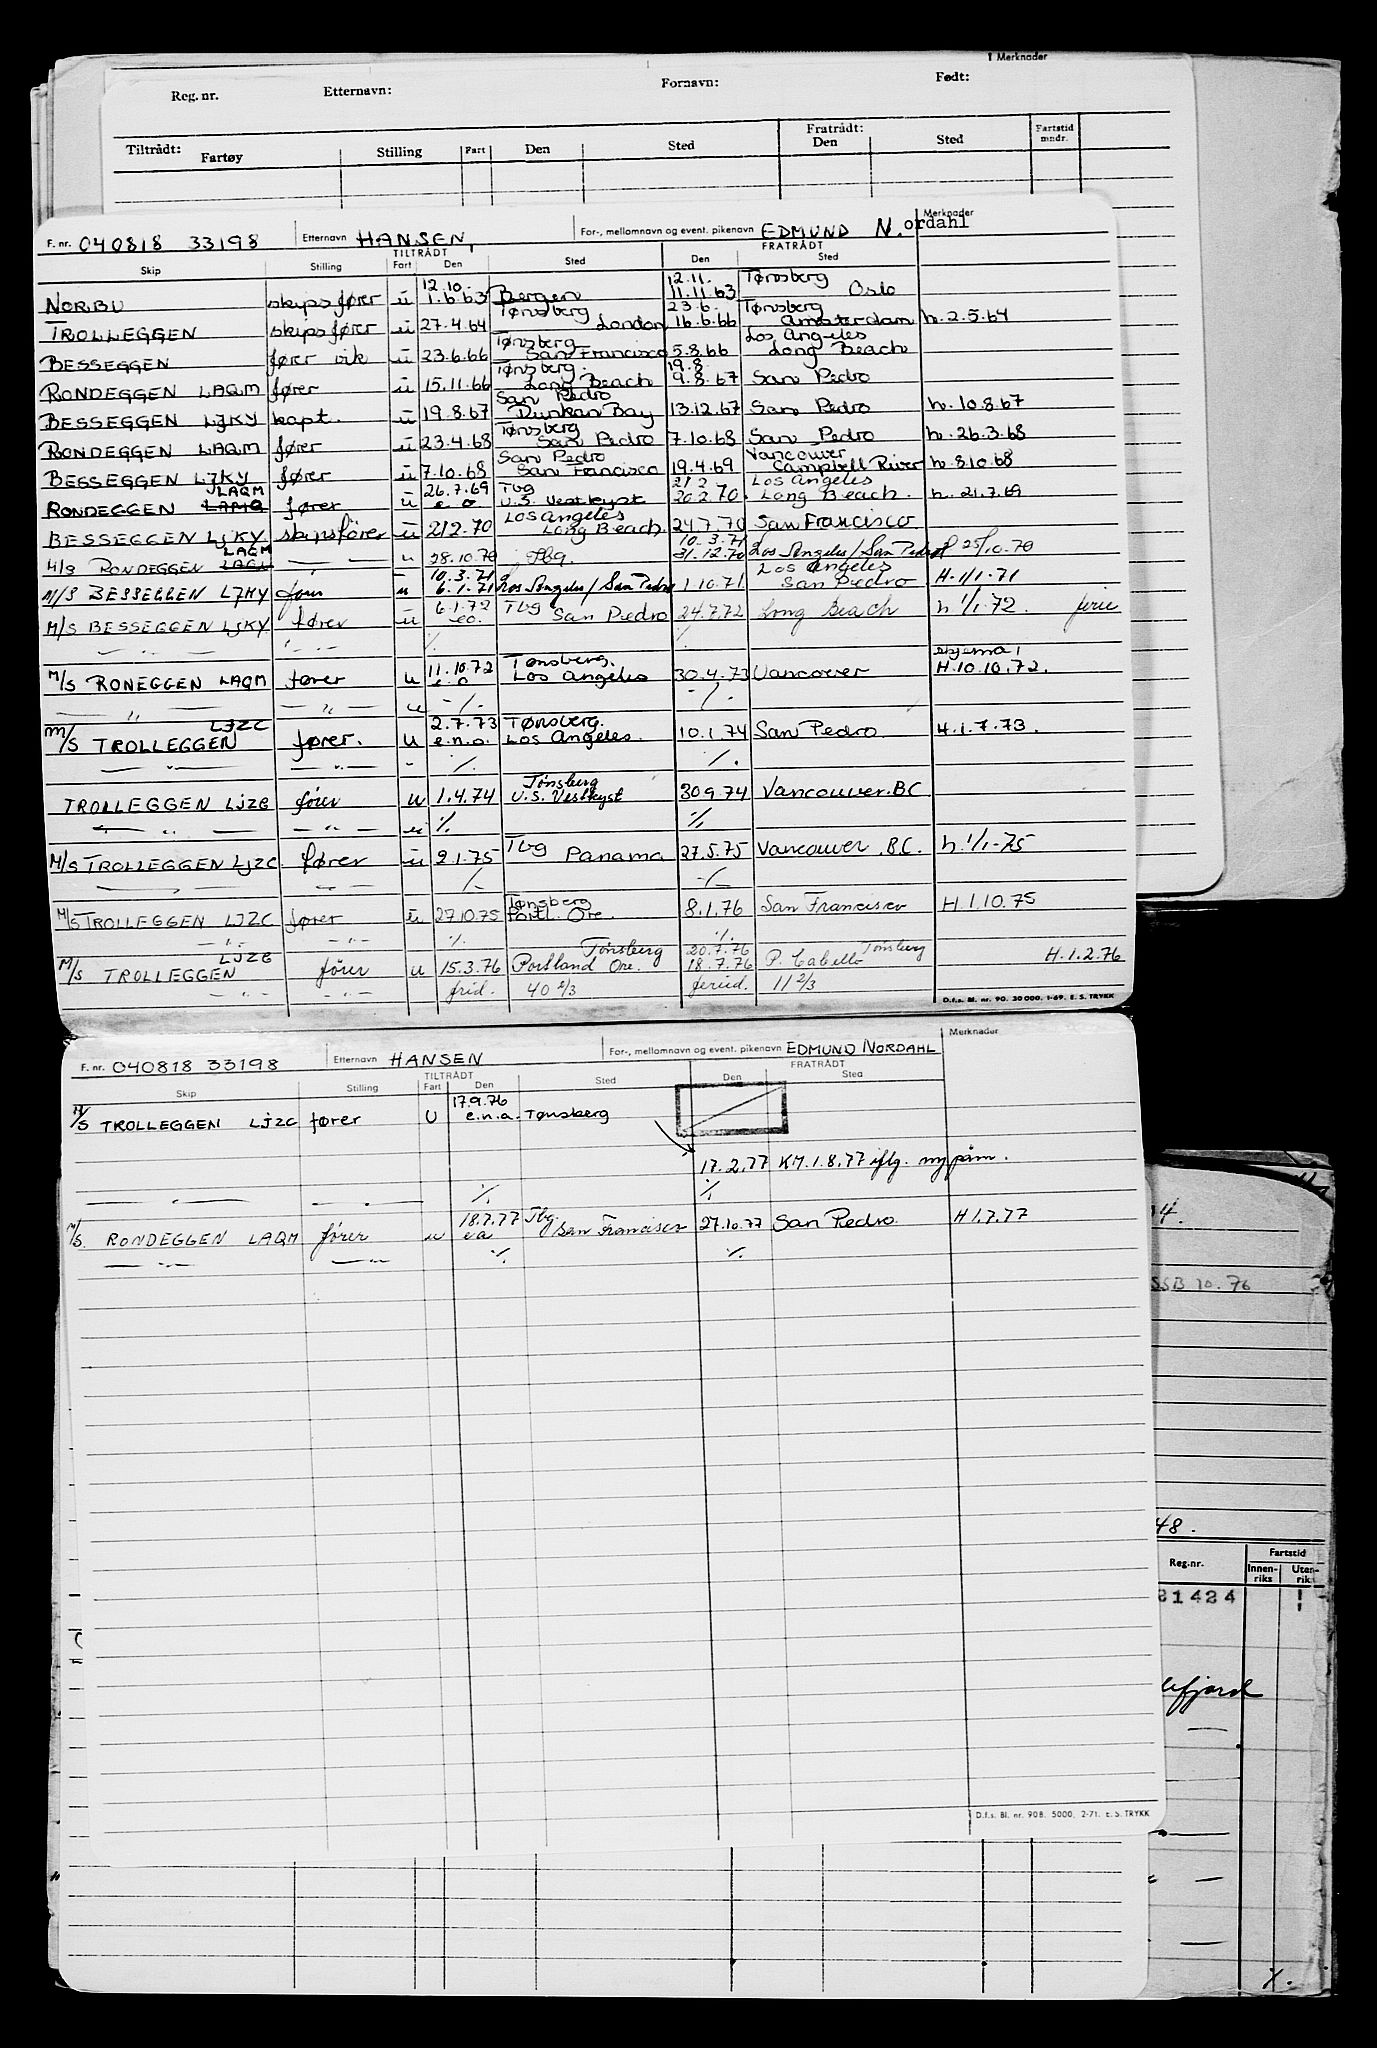 Merknader
Reg. nr. Etternavn: Fornavn: Født:
Tiltrådt: Fartøy Stilling Fart Den Sted Fratrådt: Den Sted Fartstid mndr.
F. nr. 040818 33198 Etternavn HANSEN, For-, mellomnavn og event. pikenavn EDMUND N.ordahl Merknader
TILTRÅDT FRATRÅDT
Skip Stilling Fart Den Sted Den Sted
12.10. 12.11. Tønsberg
NORBU skipsfører u 1.6.63 Bergen 11.11.63 Oslo
Tønsberg 23.6. Tønsberg
TROLLEGGEN skipsfører u 27.4.64 London 16.6.66 Amsterdam h. 2.5.64
Tønsberg Los Angeles
BESSEGGEN fører vik u 23.6.66 San Francisco 5.8.66 Long Beach
Tønsberg. 19.8
RONDEGGEN LAQM fører u 15.11.66 Long Beach 9.8.67 San Pedro
San Pedro
BESSEGGEN LJKY kapt. u 19.8.67 Dunkan Bay 13.12.67 San Pedro h. 10.8.67
Tønsberg
RONDEGGEN LAQM fører u 23.4.68 San Pedro 7.10.68 San Pedro h. 26.3.68
San Pedro Vancouver
BESSEGGEN LJKY fører u 7.10.68 San Francisco 19.4.69 Campbell River h. 8.10.68
LAQM 26.7.69 Tbg 21 2 Los Angeles
RONDEGGEN fører u e.o. U.S. Vestkyst 20.2.70. Long Beach. h. 21.7.69
Los Angeles
BESSEGGEN LJKY skipsfører u 21.2.70 Long Beach. 24.7.70 San Francisco
LAQM 10.3.71
M/S RONDEGGEN — " — u 28.10.70 Tbg. 31.12.70 Los Angeles / San Pedro 25/10.70
10.3.71 Los Angeles
M/S BESSEGGEN LJKY fører u 6.1.71 Los Angeles / San Pedro 1.10.71 San Pedro H. 1/1.71
6.1.72 Tbg
M/S BESSEGGEN LJKY fører u eo. San Pedro 24.7.72 Long Beach h 1/1.72. ferie
— " — — " — ./. ./.
11.10.72 Tønsberg.
M/S RONEGGEN LAQM fører u e.o Los Angeles 30.4.73 Vancouver H. 10.10.72.
— " — — " — u -/- -/-
LJZC 2.7.73 Tønsberg.
M/S TROLLEGGEN fører. u e.n.o. Los Angeles. 10.1.74 San Pedro H. 1.7.73.
— " — — " — - ./. ./.
Tønsberg
TROLLEGGEN LJZC fører u 1.4.74 U.S. Vestkyst 30.9.74 Vancouver. BC
— " — — " — u ./. ./.
Tbg
M/S TROLLEGGEN LJZC. fører u 2.1.75 Panama 27.5.75 Vancouver. B.C. h. 1/1-75
— " — — " — ./. -/-
Tønsberg
M/S TROLLEGGEN LJZC fører u 27.10.75 Portl. Ore. 8.1.76 San Francisco H. 1.10.75
— " — — " — ./. ./.
LJZC Tønsberg 20.7.76 Tønsberg
M/S TROLLEGGEN fører u 15.3.76 Portland Ore. 18.7.76 P. Cabello H. 1.2.76
— " — — " — frid. 40 2/3 feried. 11 2/3
D.f.s. Bl. nr. 90. 30 000. 1-69. E. S. TRYKK
F. nr. 040818 33198 Etternavn HANSEN For-, mellomnavn og event. pikenavn EDMUND NORDAHL Merknader
TILTRÅDT FRATRÅDT
Skip Stilling Fart Den Sted Den Sted
17.9.76
M/S TROLLEGGEN LJZC fører U e.n.a. Tønsberg
17.2.77 KM. 1.8.77 iflg. ny påm.
— — ./. ./.
18.7.77 Tbg.
M/S. RONDEGGEN LAQM fører u ea San Francisco 27.10.77 San Pedro. H 1.7.77
— " — — " — ./. ./.
SSB 10. 76
48.
Reg.nr. Fartstid
Innen-riks Uten-rik
31424
D.f.s. Bl. nr. 90B. 5000. 2-71. E. S. TRYKK